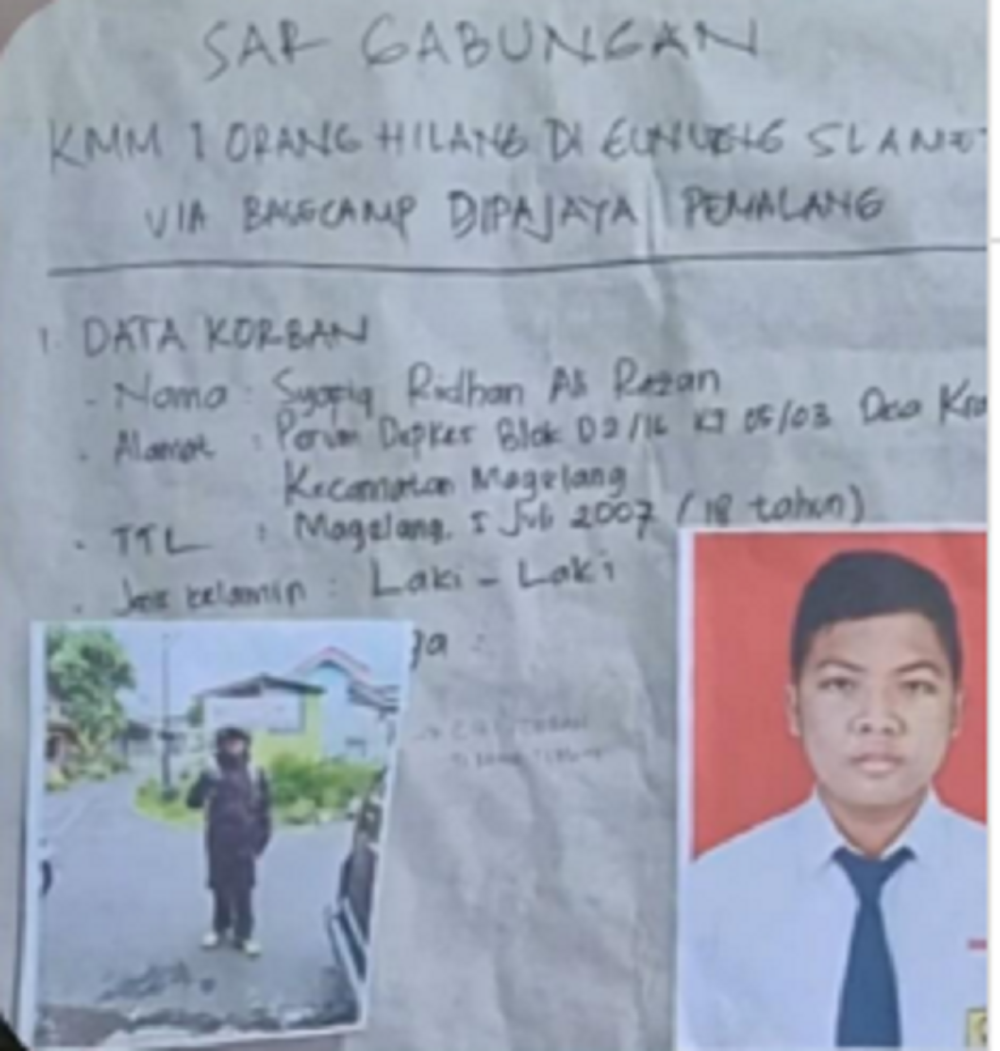 SAR GABUNGAN
KMM 1 ORANG HILANG DI GUNUNG SLAMET
VIA BASECAMP DIPAJAYA PEMALANG
1. DATA KORBAN
- Nama : Syafiq Ridhan Ali Razan
- Alamat : Perum Depkes Blok D2/16 RT 05/03 Desa Kra
Kecamatan Magelang
- TTL : Magelang, 5 Juli 2007 (18 tahun)
- Jenis kelamin : Laki - Laki
ga :